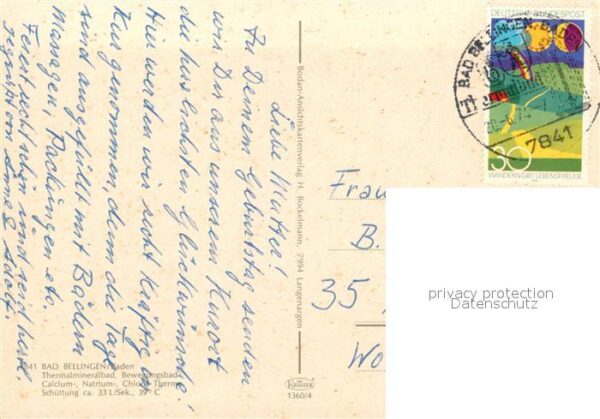 Liebe Mutter!
Zu Deinem Geburtstag senden
wir Dir aus unserem Kurort
die herzlichsten Glückwünsche!
Hier werden wir recht kräftig in
Kur genommen, denn die Tage
sind ausgefüllt mit Bädern
Massagen, Packungen etc.
Ferner sehr und sei herzl.
gegrüßt von und Adolf.
Bodan-Ansichtskartenverlag H. Bockelmann, 7994 Langenargen
DEUTSCHE BUNDESPOST
BAD BELLINGEN/BADEN
7841
30
WANDERN GIBT LEBENSFREUDE
Frau
B.
35
Wo
privacy protection
Datenschutz
BAD BELLINGEN/Baden
Thermalmineralbad, Bewegungsbad
Calcium-, Natrium-, Chlorid-Therme
Schüttung ca. 33 L/Sek., 39° C
1360/4